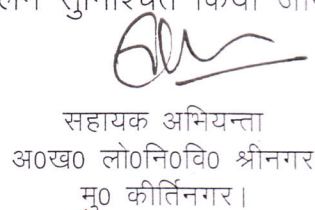 सुनिश्चित किया
सहायक अभियन्ता
अ०ख० लो०नि०वि० श्रीनगर
मु० कीर्तिनगर।